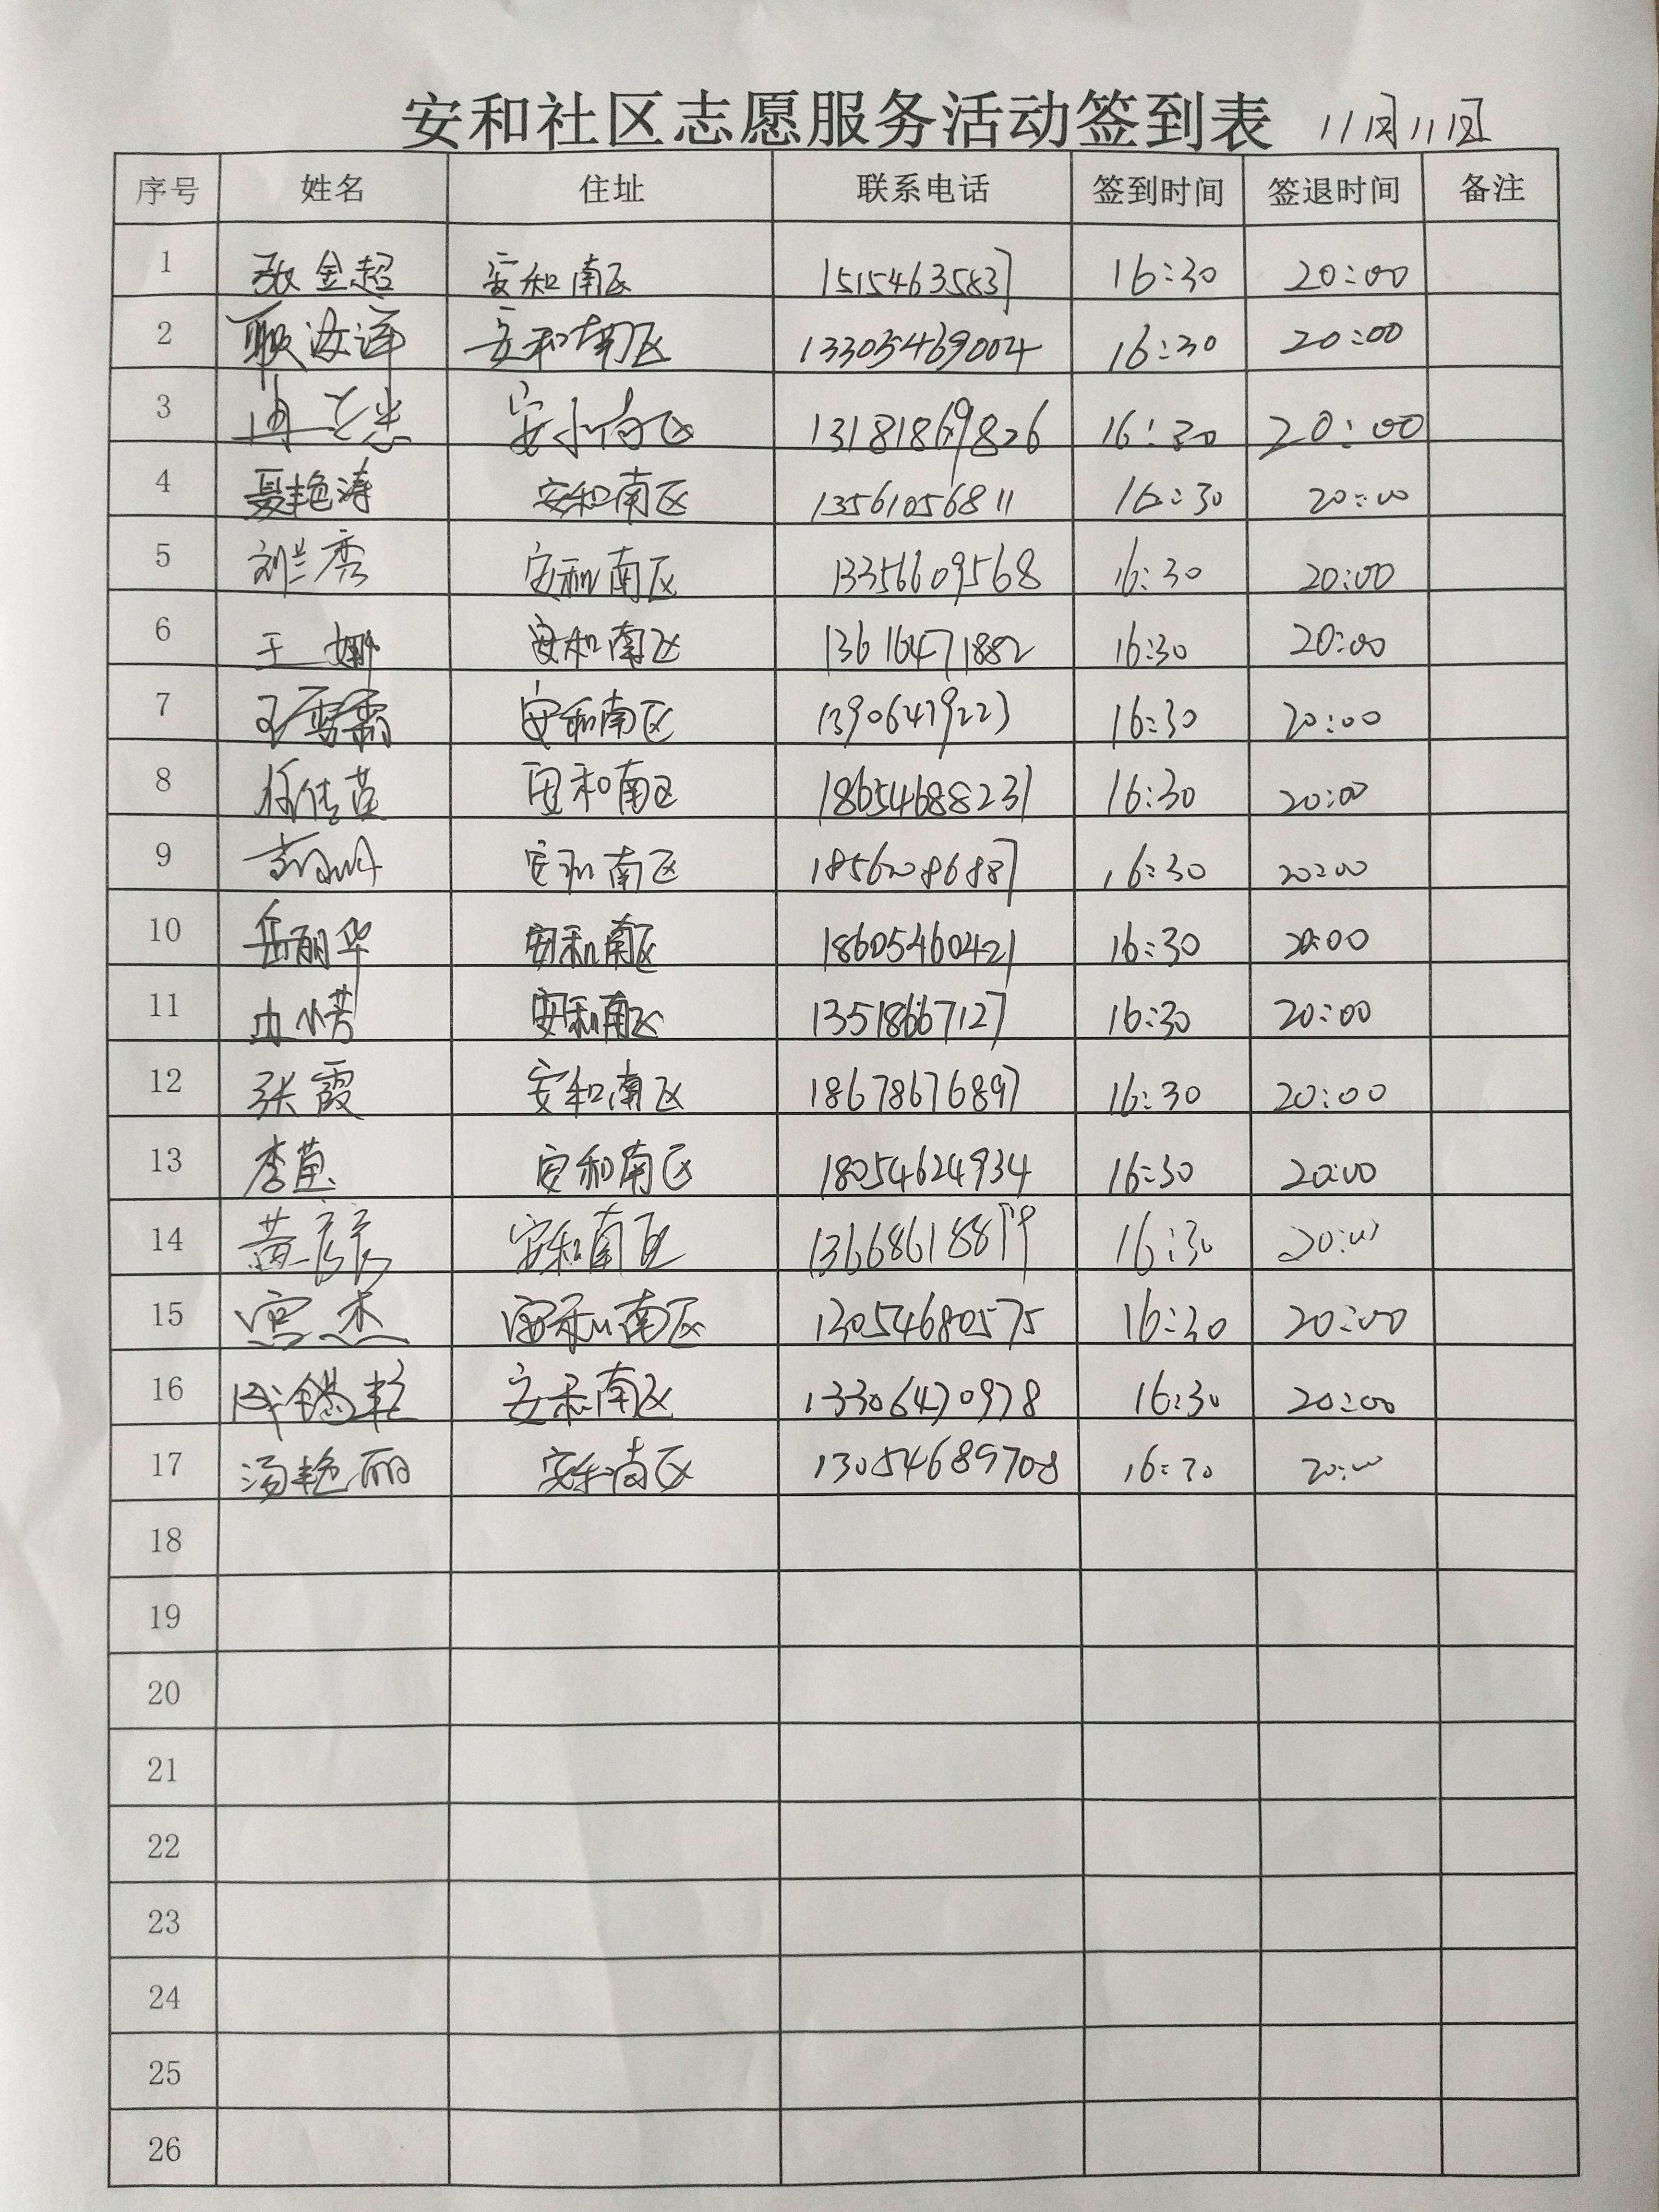 安和社区志愿服务活动签到表 11月11日
序号 姓名 住址 联系电话 签到时间 签退时间 备注
1 张金超 安和南区 15154635837 16:30 20:00
2 耿海洋 安和南区 13305469004 16:30 20:00
3 安和南区 13181869826 16:30 20:00
4 聂艳涛 安和南区 13561056811 16:30 20:00
5 刘兰秀 安和南区 13356609568 16:30 20:00
6 王娜 安和南区 13616471882 16:30 20:00
7 安和南区 13906479223 16:30 20:00
8 安和南区 18654688231 16:30 20:00
9 安和南区 18562086887 16:30 20:00
10 岳丽华 安和南区 18605460421 16:30 20:00
11 安和南区 13518667127 16:30 20:00
12 张霞 安和南区 18678676897 16:30 20:00
13 李苗 安和南区 18054624934 16:30 20:00
14 安和南区 16:30 20:00
15 宫杰 安和南区 13054680575 16:30 20:00
16 安和南区 13306470978 16:30 20:00
17 汤艳丽 安和南区 13054689708 16:30 20:00
18
19
20
21
22
23
24
25
26